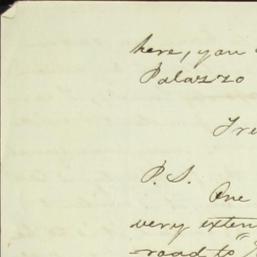 here, you
Palazzo
P. S.
One
very exten
road to "